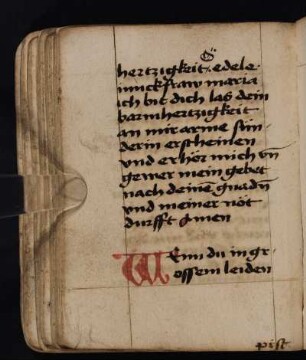 hertzigkeit edele
iunckfraw maria
ich bit dich las dein
barmhertzigkeit
an mir arme sun
derin erscheinen
vnd erhor mich vn̄
gewer mein gebet
nach deinē gnadn̄
vnd meiner not
durfft Amen
Wenn du in gr
ossem leiden
pist